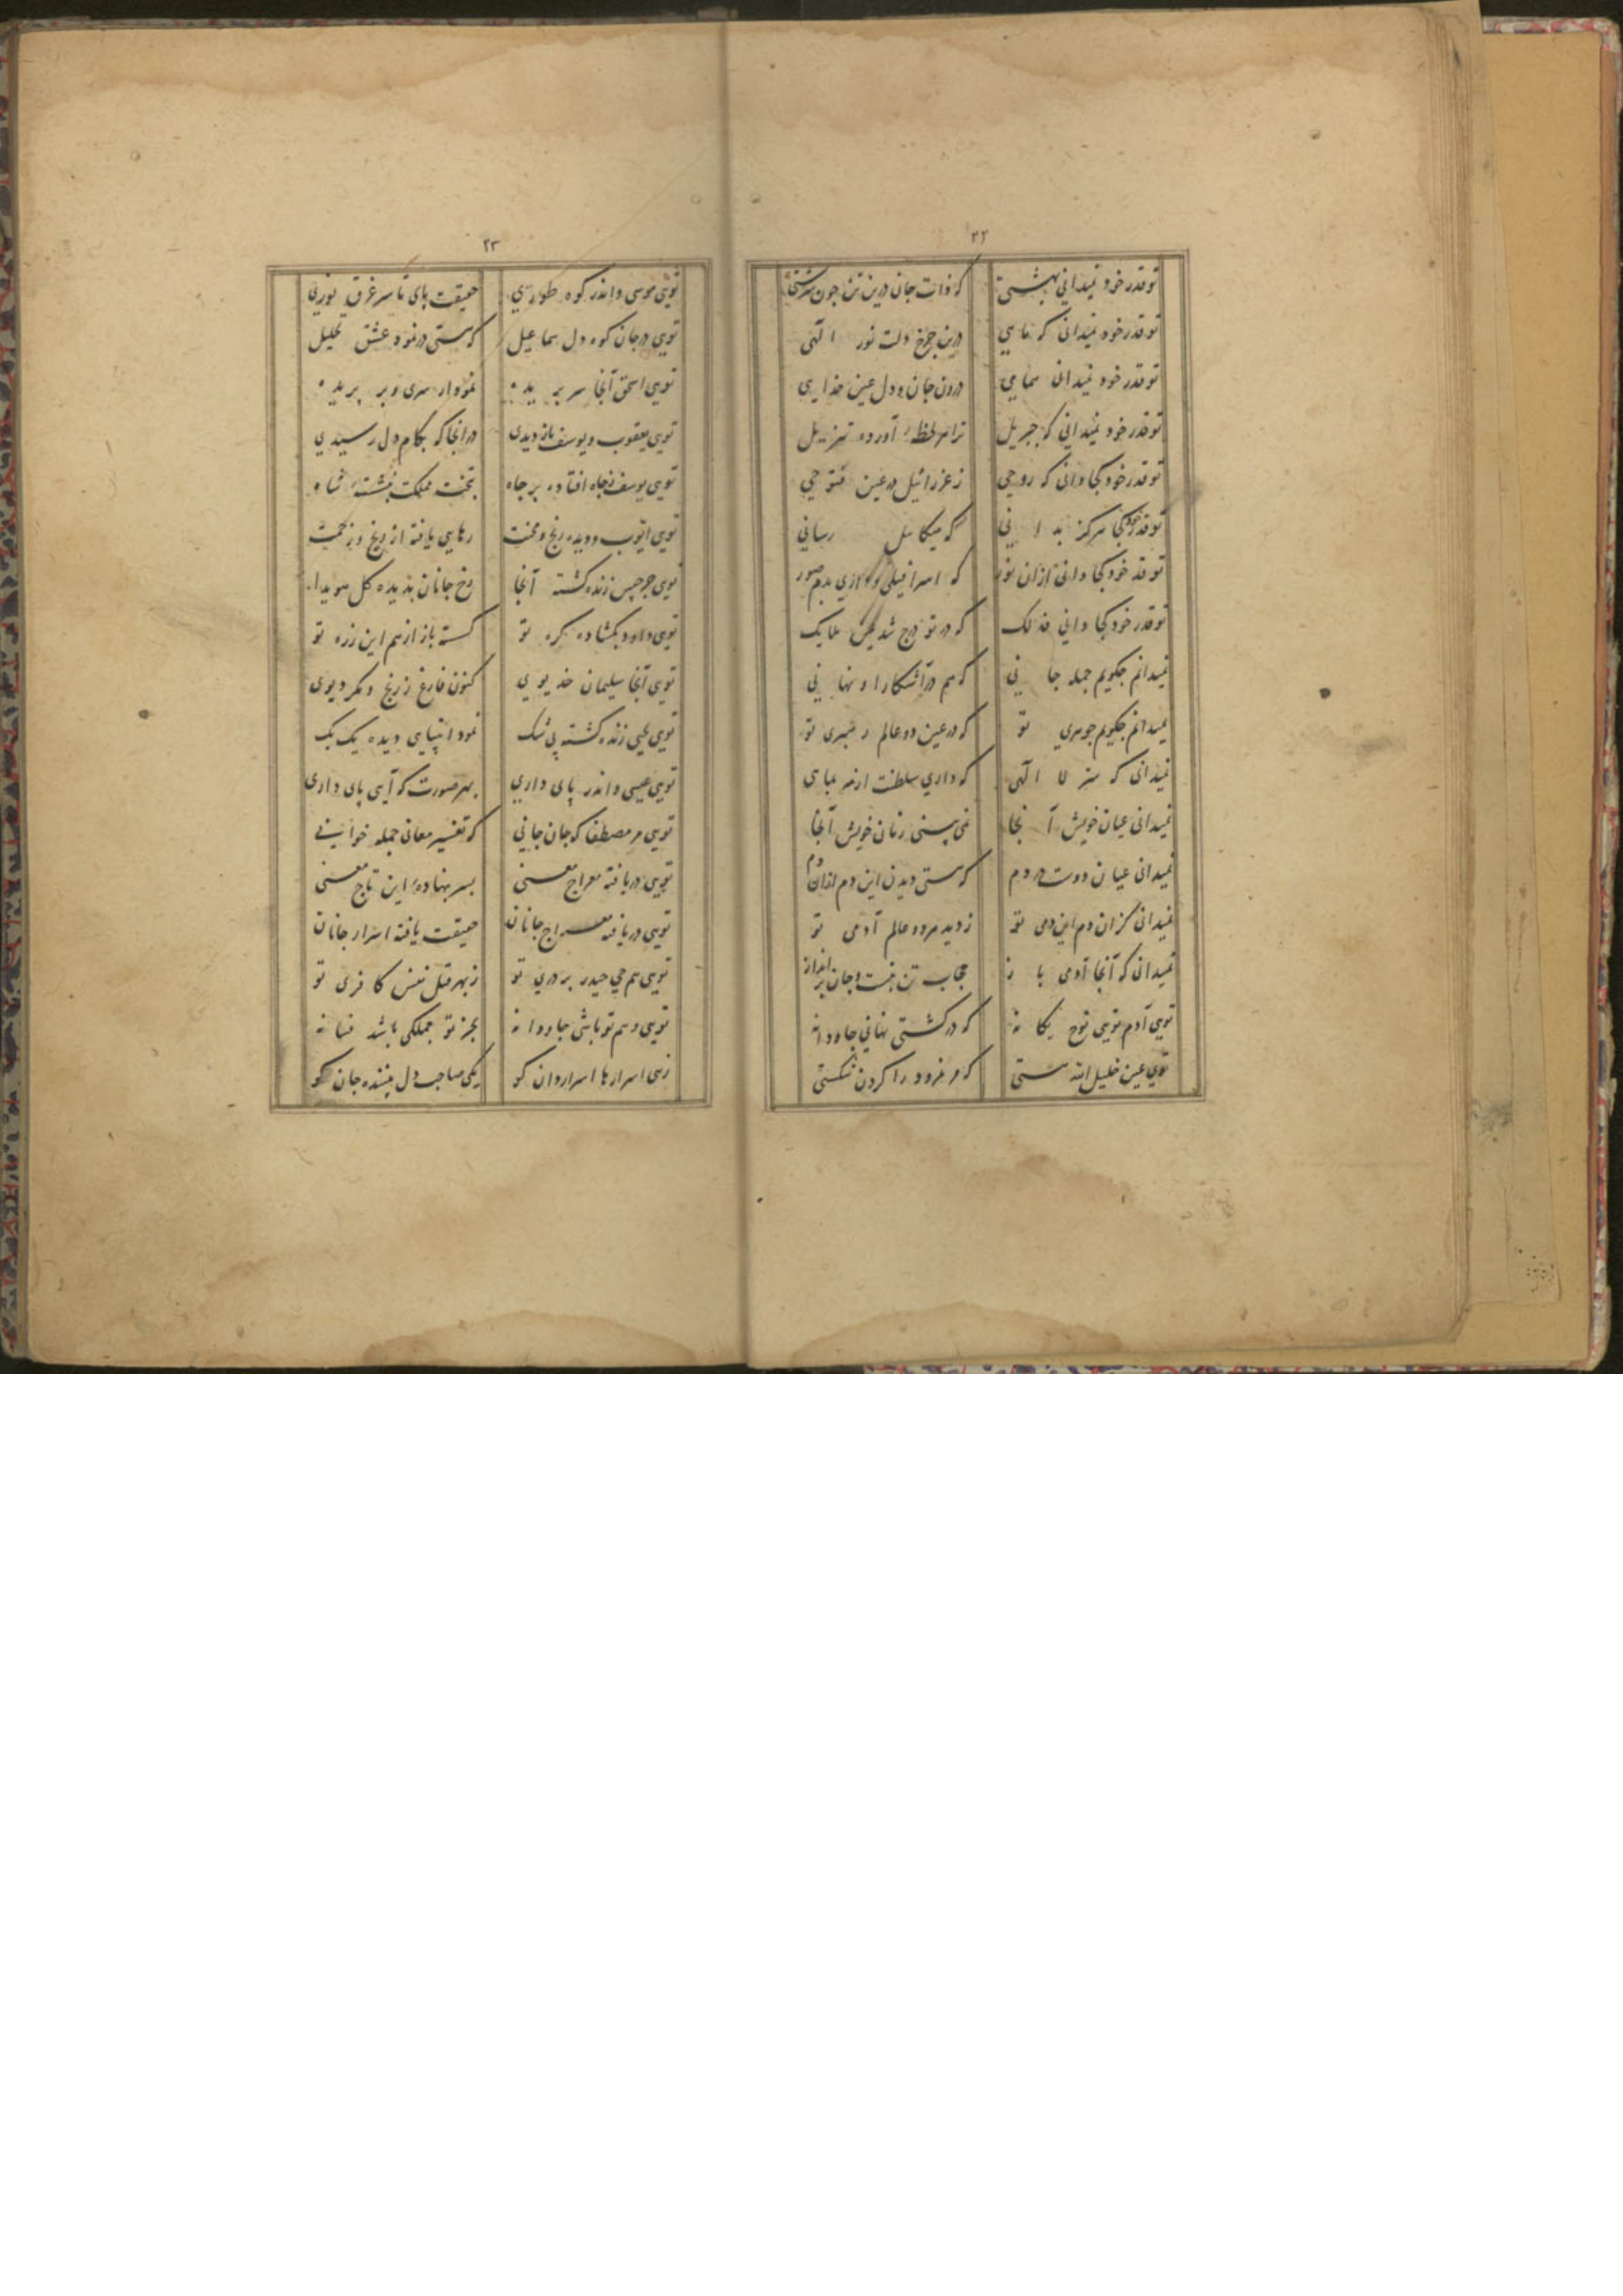 ۲۲
تو قدر خود نمیدانی بهشتی که ذات جان درین تن چون سرشتی
تو قدر خود نمیدانی که ماهی درین چرخ دلت نور الهی
تو قدر خود نمیدانی سمایی درون جان و دل عین خدایی
تو قدر خود نمیدانی که جبریل ترا هر لحظهٔ آورده تنزیل
تو قدر خود کجا دانی که روحی ز عزرائیل در عین فتوحی
تو قدر خود کجا هرگز بدانی که میکائیل رسانی
تو قدر خود کجا دانی ازان نور که اسرافیلی و داری بدم صور
تو قدر خود کجا دانی فذلک که در تو درج شد ملایک
نمیدانم چگویم جمله جانی که هم در آشکارا و نهانی
نمیدانم چگویم جوهری تو که در عین دو عالم رهبری تو
نمیدانی که سر لا الهی که داری سلطنت از مه بماهی
نمیدانی عیان خویش آنجا نمی بینی زمان خویش آنجا
نمیدانی عیان دوست در دم که هستی دیدن این دم ازان دم
نمیدانی کزان دم این دمی تو ز دید هر دو عالم آدمی تو
نمیدانی که آنجا آدمی باز حجاب تن بهشت و جان برانداز
تویی آدم تویی نوح یگانه که در کشتی نهانی جاودانه
تویی عین خلیل الله هستی که مر نمرود را گردن شکستی
۲۳
تویی موسی و اندر کوه طوری حقیقت پای تا سر غرق نوری
تویی در جان کوه دل سماعیل که هستی در نمود عشق تحلیل
تویی اسحق آنجا سر بریده نمودار سری و بر پریده
تویی یعقوب و یوسف باز دیدی در آنجا که بکام دل رسیدی
تویی یوسف ز چاه افتاده بر جاه بتخت مملکت بنشستهٔ شاه
تویی ایوب و دیده رنج و محنت رهایی یافته از رنج و زحمت
تویی جرجیس زنده گشته آنجا رخ جانان بدیده کل هویدا
تویی داود بگشاده گره تو گسسته باز از هم این زره تو
تویی آنجا سلیمان خدیوی کنون فارغ ز رنج و مکر دیوی
تویی یحیی زنده گشته بی شک نمود انبیای دیده یک یک
تویی عیسی و اندر پای داری بهر صورت که آیی پای داری
تویی مر مصطفا که جان جانی که تفسیر معانی جمله خوانی
تویی دریافته معراج معنی بسر بنهادهٔ این تاج معنی
تویی دریافته معراج جانان حقیقت یافته اسرار جانان
تویی هم حی حیدر بر دری تو ز بهر قتل نفس کافری تو
تویی و هم تو باشی جاودانه بجز تو جملگی باشد فسانه
زهی اسرارها اسراردان کو یکی صاحب دل بیننده جان کو